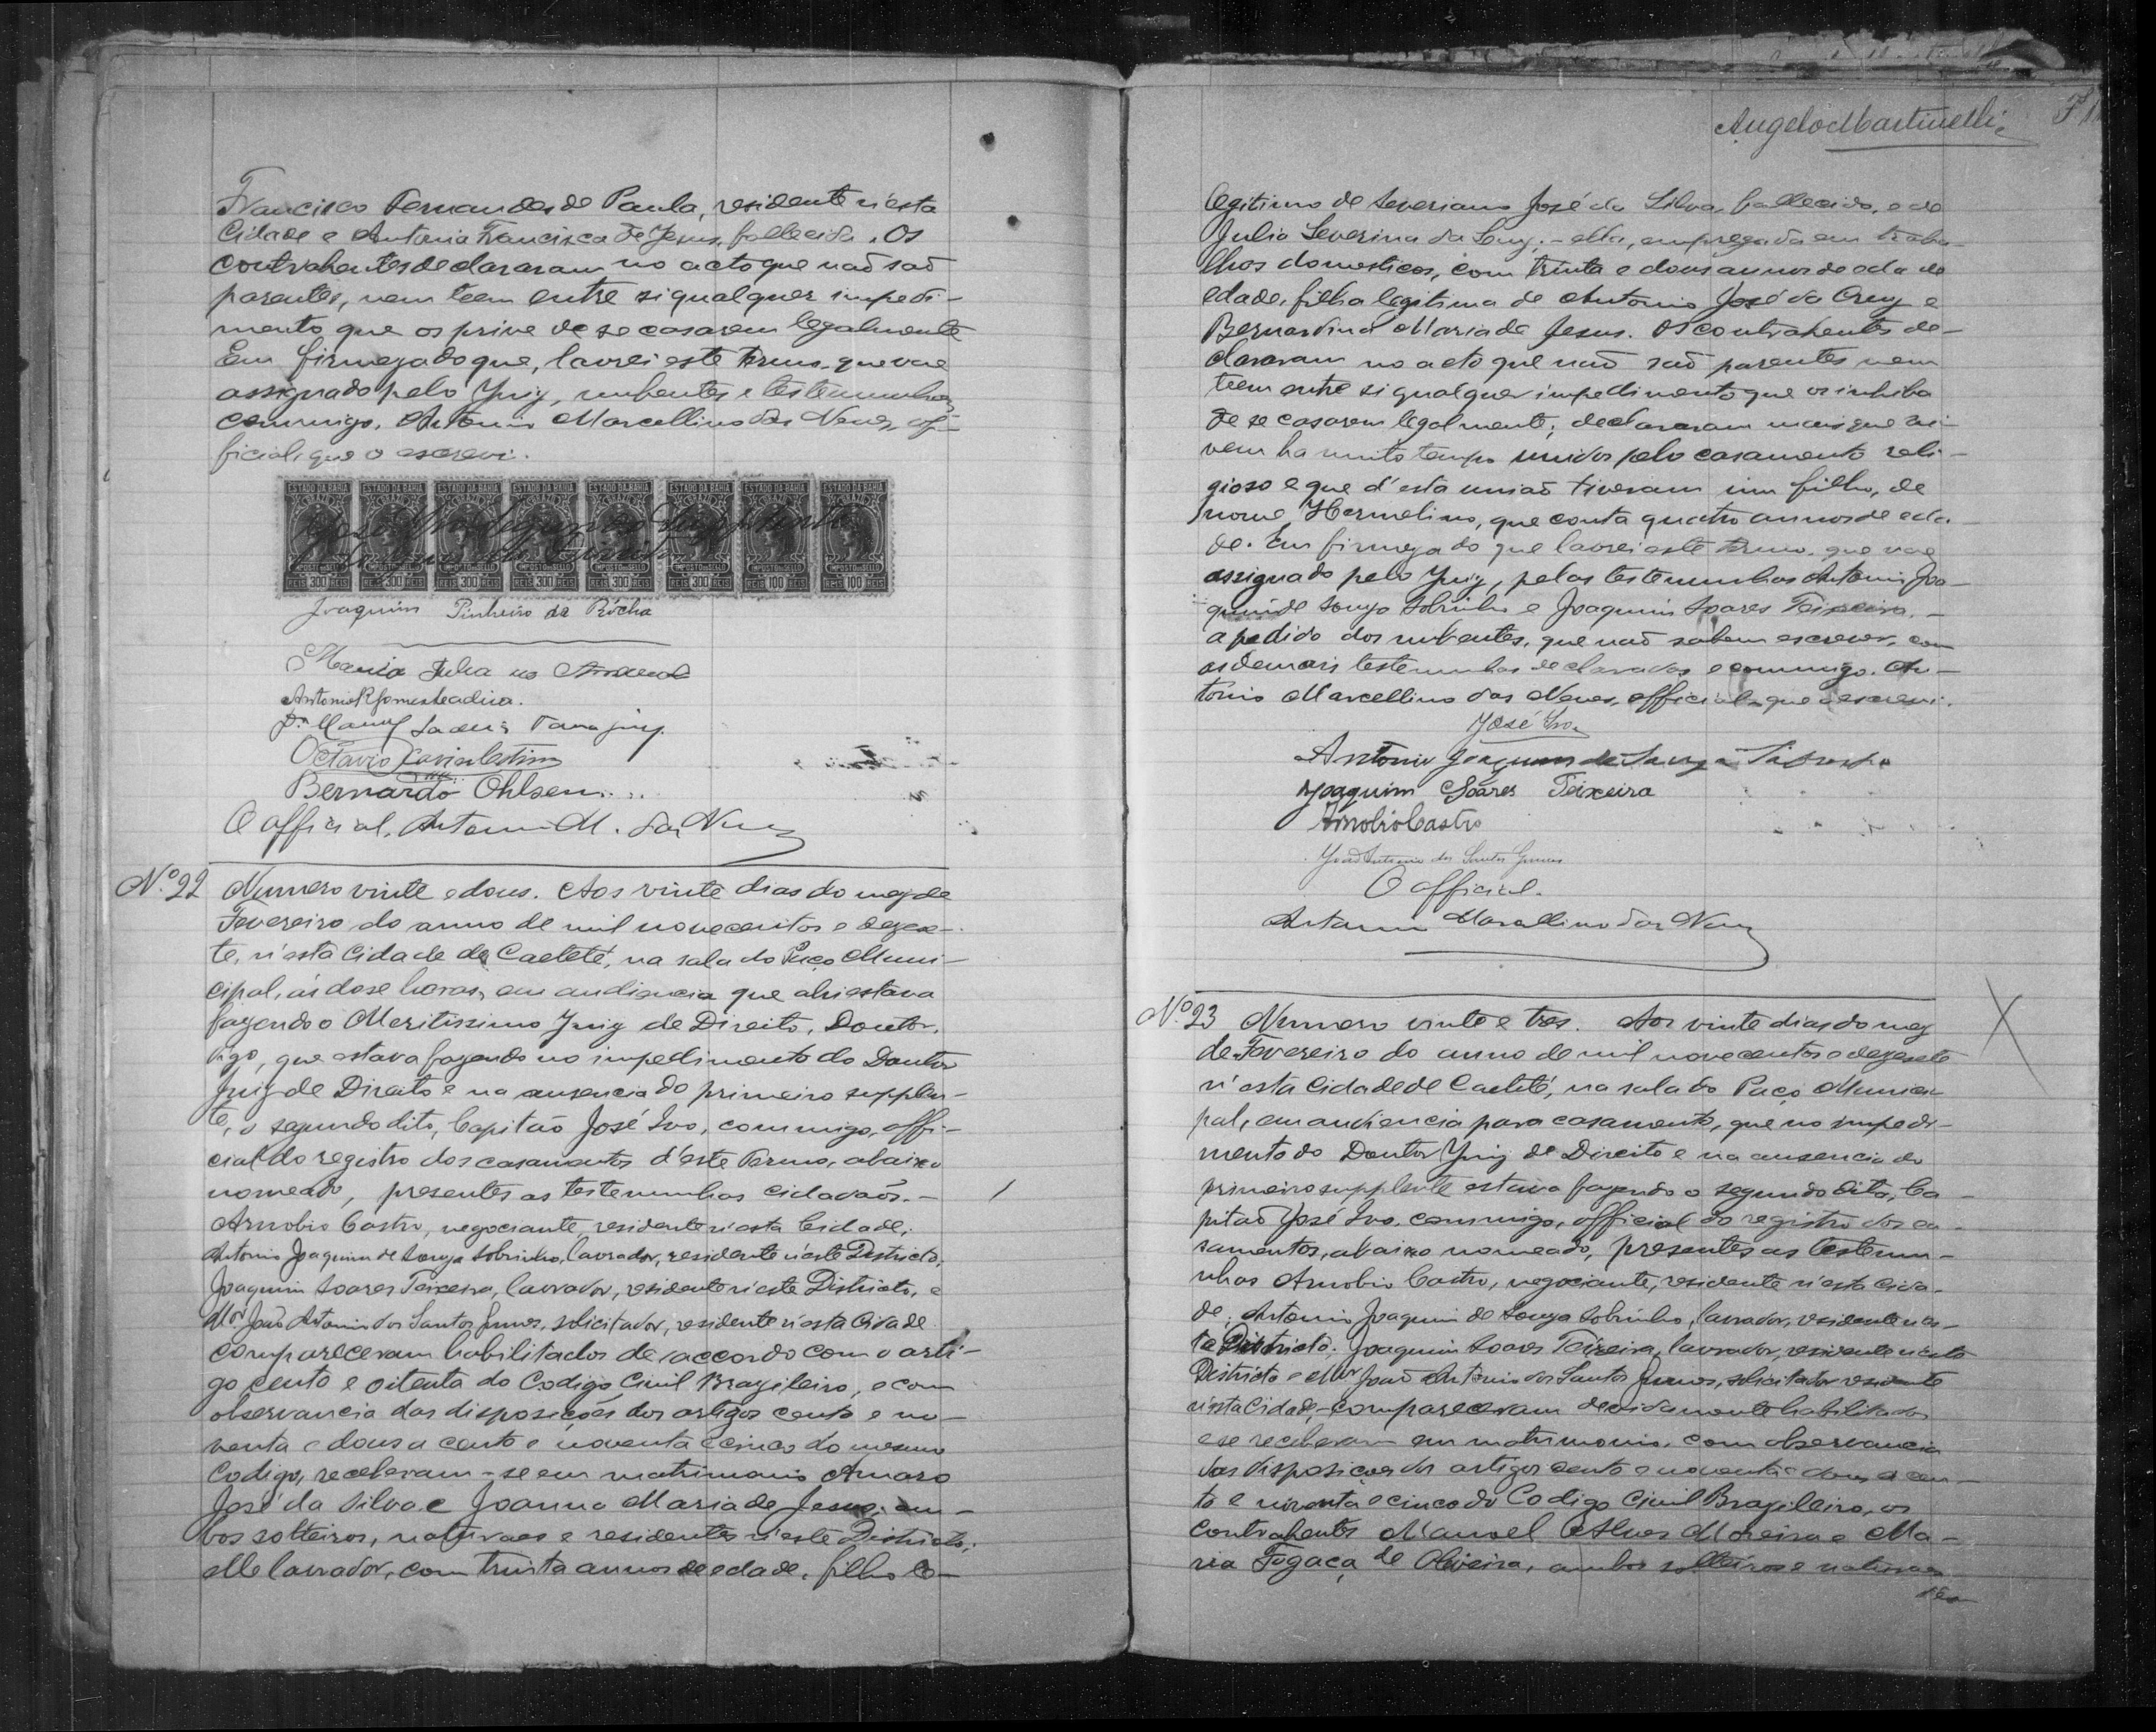 Francisco Fernandes de Paula, residente n'esta
Cidade e Antonia Francisca de Jesus, fallecida. Os
contrahentes declararam no acto que não são
parentes, nem teem entre si qualquer impedi-
mento que os prive de se casarem legalmente
Em firmeza do que, lavrei este termo, que vae
assignado pelo Juiz, nubentes e testemunhas
commigo, Antonio Marcellino das Neves, of-
ficial, que o escrevi.
ESTADO DA BAHIA ESTADO DA BAHIA ESTADO DA BAHIA ESTADO DA BAHIA ESTADO DA BAHIA ESTADO DA BAHIA ESTADO DA BAHIA ESTADO DA BAHIA
IMPOSTO DO SELLO IMPOSTO DO SELLO IMPOSTO DO SELLO IMPOSTO DO SELLO IMPOSTO DO SELLO IMPOSTO DO SELLO IMPOSTO DO SELLO IMPOSTO DO SELLO
REIS 300 REIS REIS 300 REIS REIS 300 REIS REIS 300 REIS REIS 300 REIS REIS 300 REIS REIS 100 REIS REIS 100 REIS
Joaquim Pinheiro da Rocha
Maria Julia
Antonio R
Dr Manuel
Octavio
Bernardo Ohlsen
O official, Antonio M. das Neves
Nº 22 Numero vinte e dous. Aos vinte dias do mez de
Fevereiro do anno de mil novecentos e dezese-
te, n'esta Cidade de Caeteté, na sala do Paço Muni-
cipal, ás dose horas, em audiencia que ahi estava
fazendo o Meritissimo Juiz de Direito, Doutor,
digo, que estava fazendo no impedimento do Doutor
Juiz de Direito e na ausencia do primeiro supplen-
te, o segundo dito, Capitão José Ivo, commigo, offi-
cial do registro dos casamentos d'este Termo, abaixo
nomeado, presentes as testemunhas cidadaõs.-
Arnobio Castro, negociante, residente n'esta Cidade;
Antonio Joaquim de Souza Sobrinho, lavrador, residente n'este Districto,
Joaquim Soares Teixeira, lavrador, residente n'este Districto, e
Mor João Antonio dos Santos Gumes, solicitador, residente n'esta Cidade
compareceram habilitados de accordo com o arti-
go cento e oitenta do Codigo Civil Brazileiro, e com
observancia das disposições dos artigos cento e no-
venta e dous a cento e noventa e cinco do mesmo
Codigo, receberam-se em matrimonio Amaro
José da Silva e Joanna Maria de Jesus, am-
bos solteiros, naturaes e residentes n'este Districto;
elle lavrador, com trinta annos de edade, filho le-
Angelo Martinelli
legitimo de Severiano José da Silva, fallecido, e de
Julia Severina da Souz; - ella, empregada em traba-
lhos domesticos, com trinta e dous annos de eda de
edade, filha legitima de Antonio José da Cruz e
Bernardina Maria de Jesus. Os contrahentes de-
clararam no acto que não são parentes nem
teem entre si qualquer impedimento que os inhiba
de se casarem legalmente; declararam mais que vi-
vem ha muito tempo unidos pelo casamento reli-
gioso e que d'esta união tiveram um filho, de
nome Hermelino, que conta quatro annos de eda-
de. Em firmeza do que lavrei este termo, que vae
assignado pelo Juiz, pelas testemunhas Antonio Joa-
quim de Souza Sobrinho e Joaquim Soares Teixeira, -
a pedido dos nubentes, que não sabem escrever, com
as demais testemunhas declaradas e commigo. An-
tonio Marcellino das Neves, official, que o escrevi.
José Ivo
Antonio Joaquim de Souza Sobrinho
Joaquim Soares Teixeira
Arnobio Castro
João Antonio dos Santos Gumes
O official.
Antonio Marcellino das Neves
Nº 23 Numero vinte e tres. Aos vinte dias do mez
de Fevereiro do anno de mil novecentos e dezesete
n'esta Cidade de Caeteté, na sala do Paço Munici-
pal, em audiencia para casamento, que no impedi-
mento do Doutor Juiz de Direito e na ausencia do
primeiro supplente estava fazendo o segundo dito, Ca-
pitão José Ivo, commigo, official do registro dos ca-
samentos, abaixo nomeado, presentes as testemu-
nhas Arnobio Castro, negociante, residente n'esta Cida-
de, Antonio Joaquim de Souza Sobrinho, lavrador, residente n'es-
te Districto; Joaquim Soares Teixeira, lavrador, residente n'este
Districto e Mor João Antonio dos Santos Gumes, solicitador residente
n'esta Cidade, - compareceram devidamente habilitados
e se receberam em matrimonio, com observancia
das disposições dos artigos cento e noventa e dous a cen-
to e noventa e cinco do Codigo Civil Brazileiro, os
contrahentes Manoel Alves Moreira e Ma-
ria Fogaça de Oliveira, ambos solteiros e naturaes